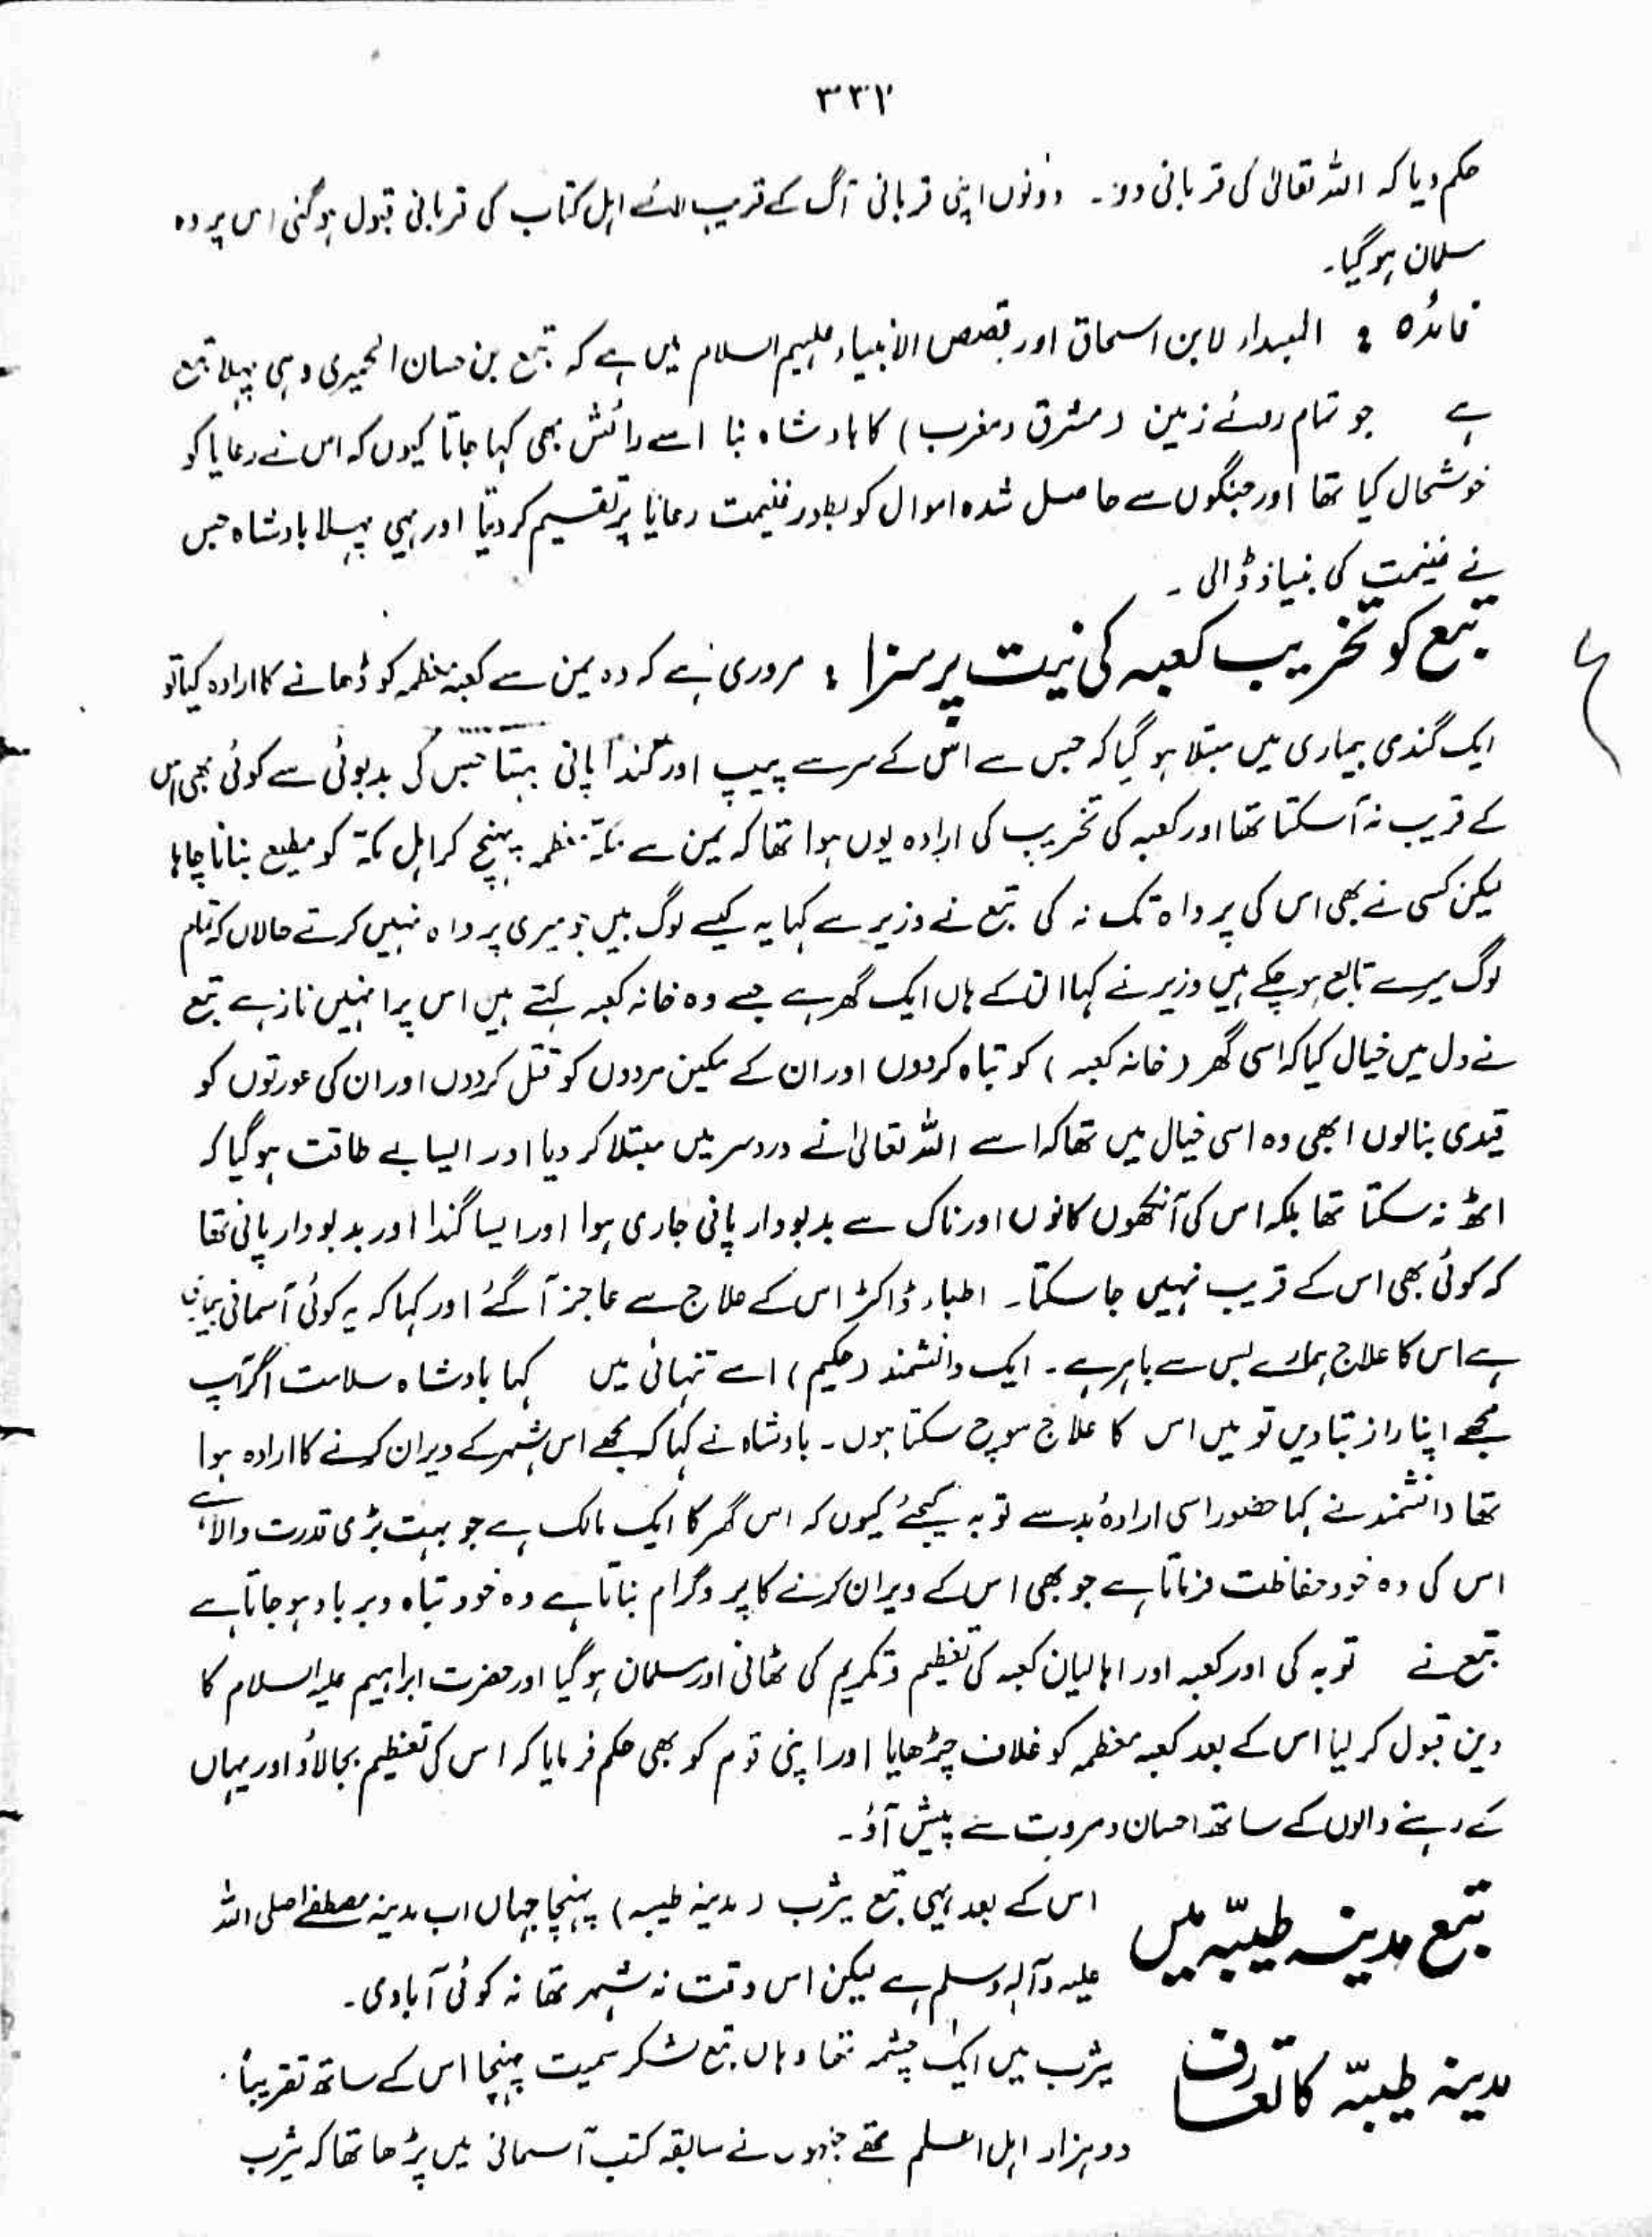 ۳۳۲
حکم دیا کہ اللہ تعالیٰ کی قربانی دو۔ دونوں اپنی قربانی آگ کے قریب لائے اہل کتاب کی قربانی قبول ہوگئی اس پر وہ
مسلمان ہوگیا۔
فائدہ : المبداء لابن اسحاق اور قصص الانبیاء علیہم السلام میں ہے کہ تبع بن حسان الحمیری وہی پہلا تبع
ہے جو تمام روئے زمین (مشرق و مغرب) کا بادشاہ بنا اسے رائش بھی کہا جاتا کیوں کہ اس نے رعایا کو
خوشحال کیا تھا اور جنگوں سے حاصل شدہ اموال کو بطور غنیمت رعایا پر تقسیم کر دیتا اور یہی پہلا بادشاہ جس
نے غنیمت کی بنیاد ڈالی۔
تبع کو تخریب کعبہ کی نیت پر سزا : مروری ہے کہ وہ یمن سے کعبہ معظمہ کو ڈھانے کا ارادہ کیا تو
ایک گندی بیماری میں مبتلا ہو گیا کہ جس سے اس کے سر سے پیپ اور گندا پانی بہتا جس کی بدبوئی سے کوئی بھی اس
کے قریب نہ آسکتا تھا اور کعبہ کی تخریب کی ارادہ یوں ہوا تھا کہ یمن سے مکہ معظمہ پہنچ کر اہل مکہ کو مطیع بنانا چاہا
لیکن کسی نے بھی اس کی پرواہ تک نہ کی تبع نے وزیر سے کہا یہ کیسے لوگ ہیں جو میری پرواہ نہیں کرتے حالاں کہ تمام
لوگ میرے تابع ہو چکے ہیں وزیر نے کہا ان کے ہاں ایک گھر ہے جسے وہ خانہ کعبہ کہتے ہیں اس پر انہیں ناز ہے تبع
نے دل میں خیال کیا کہ اسی گھر (خانہ کعبہ) کو تباہ کردوں اور ان کے مکین مردوں کو قتل کردوں اور ان کی عورتوں کو
قیدی بنالوں ابھی وہ اسی خیال میں تھا کہ اسے اللہ تعالیٰ نے درد سر میں مبتلا کر دیا اور ایسا بے طاقت ہوگیا کہ
اٹھ نہ سکتا تھا بلکہ اس کی آنکھوں کانوں اور ناک سے بدبودار پانی جاری ہوا اور ایسا گندا اور بدبودار پانی تھا
کہ کوئی بھی اس کے قریب نہیں جا سکتا۔ اطباء ڈاکٹر اس کے علاج سے عاجز آ گئے اور کہا کہ یہ کوئی آسمانی بیماری
ہے اس کا علاج ہمارے بس سے باہر ہے۔ ایک دانشمند (حکیم) اسے تنہائی میں کہا بادشاہ سلامت اگر آپ
مجھے اپنا راز بتا دیں تو میں اس کا علاج سوچ سکتا ہوں۔ بادشاہ نے کہا کہ مجھے اس شہر کے ویران کرنے کا ارادہ ہوا
تھا دانشمند نے کہا حضور اسی ارادۂ بد سے توبہ کیجئے کیوں کہ اس گھر کا ایک مالک ہے جو بہت بڑی قدرت والا ہے
اس کی وہ خود حفاظت فرماتا ہے جو بھی اس کے ویران کرنے کا پروگرام بناتا ہے وہ خود تباہ و برباد ہو جاتا ہے
تبع نے توبہ کی اور کعبہ اور اہالیان کعبہ کی تعظیم و تکریم کی ٹھانی اور مسلمان ہو گیا اور حضرت ابراہیم علیہ السلام کا
دین قبول کر لیا اس کے بعد کعبہ معظمہ کو غلاف چڑھایا اور اپنی قوم کو بھی حکم فرمایا کہ اس کی تعظیم بجالاؤ اور یہاں
کے رہنے والوں کے ساتھ احسان و مروت سے پیش آؤ۔
تبع مدینہ طیبہ میں اس کے بعد یہی تبع یثرب (مدینہ طیبہ) پہنچا جہاں اب مدینہ مصطفےٰ صلی اللہ
علیہ وآلہ وسلم ہے لیکن اس وقت نہ شہر تھا نہ کوئی آبادی۔
مدینہ طیبہ کا تعارف یثرب میں ایک چشمہ تھا وہاں تبع لشکر سمیت پہنچا اس کے ساتھ تقریباً
دو ہزار اہل اعلم تھے جنہوں نے سابقہ کتب آسمانی میں پڑھا تھا کہ یثرب